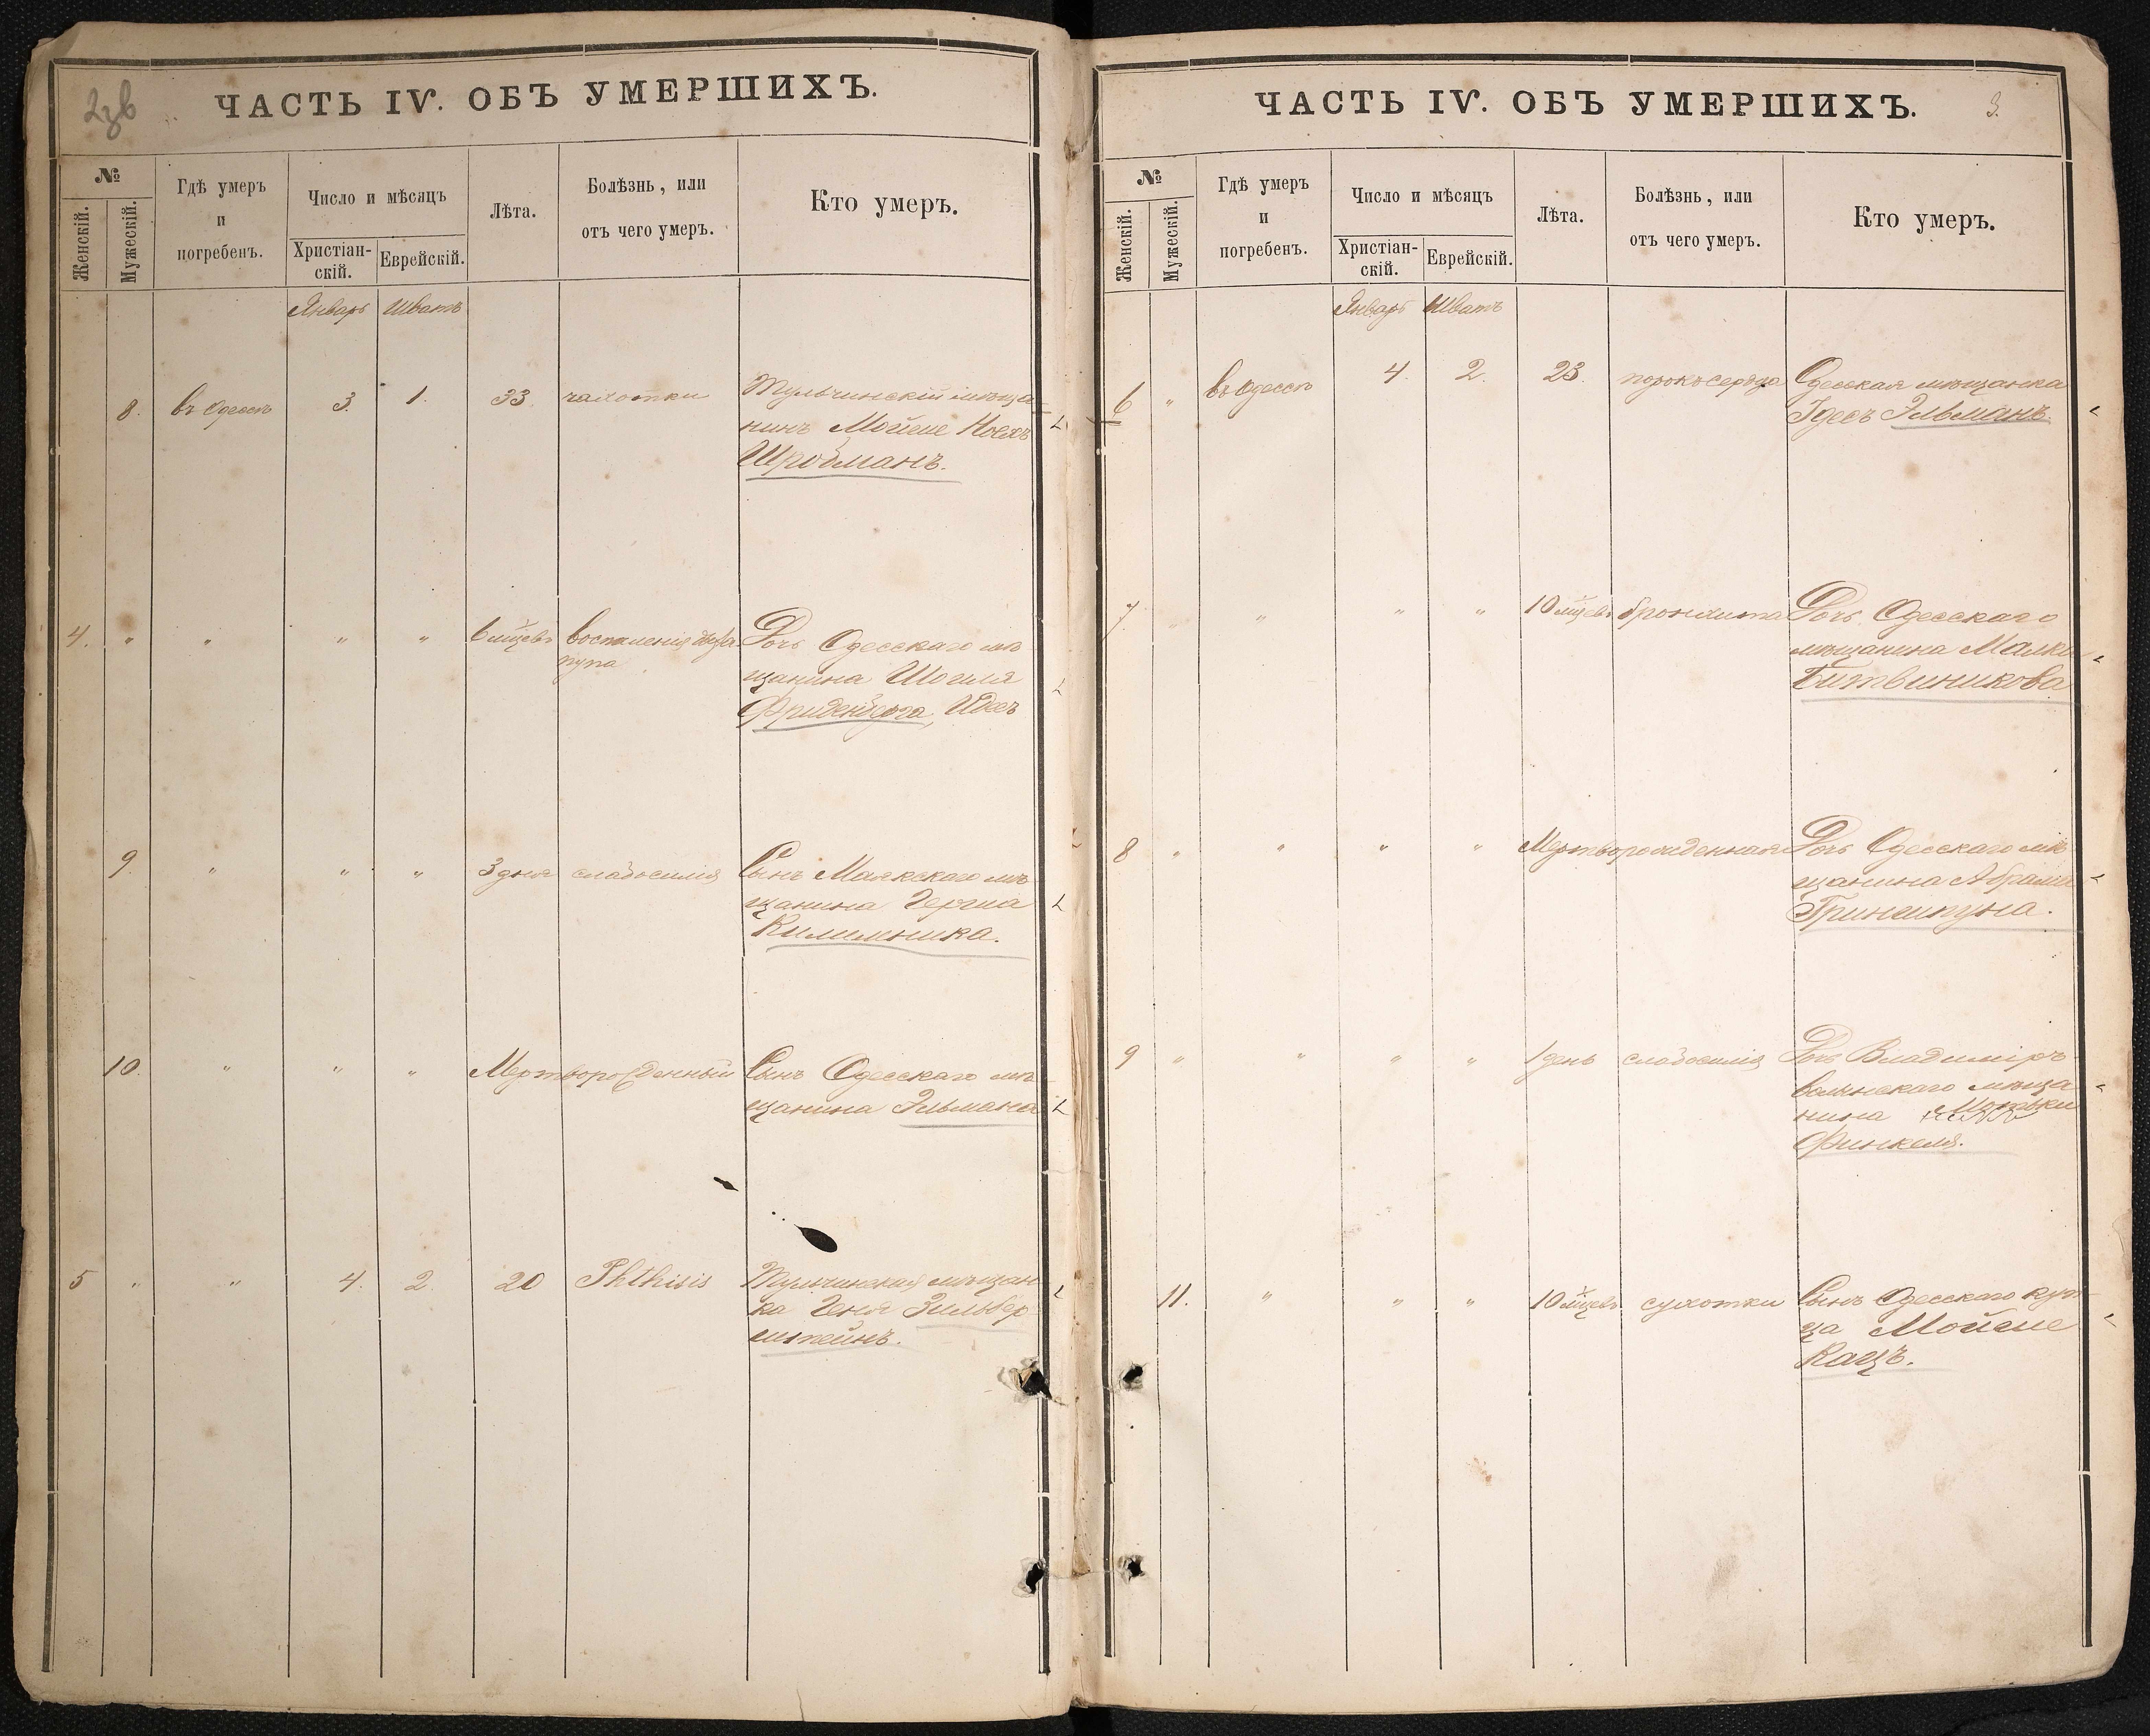 2зв
ЧАСТЬ IV. ОБЪ УМЕРШИХЪ.
№
Женскій.
Мужескій.
Гдѣ умеръ
и
погребенъ.
Число и мѣсяцъ
Христіан-
скій.
Еврейскій.
Лѣта.
Болѣзнь, или
отъ чего умеръ.
Кто умеръ.
Январь Шватъ
8. въ Одессѣ 3. 1. 33 чахотки Тульчинскій мѣща
нинъ Мойше Ноехъ
Шройманъ.
4. " " " " 6 мѣцевъ воспаленія
пупа
Дочь Одесскаго мѣ
щанина Шогиля
Фриденберга, Идесъ
9. " " " 3 дня слабосилія Сынъ Маякскаго мѣ
щанина Герша
Килимника.
10. " " " Мертворожденный Сынъ Одесскаго мѣ
щанина Эльмана
5 " " 4. 2. 20 Phthisis Тульчинская мѣщан
ка Геня Зильбер
штейнъ.
ЧАСТЬ IV. ОБЪ УМЕРШИХЪ.
3.
№
Женскій.
Мужескій.
Гдѣ умеръ
и
погребенъ.
Число и мѣсяцъ
Христіан-
скій.
Еврейскій.
Лѣта.
Болѣзнь, или
отъ чего умеръ.
Кто умеръ.
Январь Шватъ
6 " въ Одессѣ 4. 2. 23. порокъ сердца Одесская мѣщанка
Идесъ Эльманъ.
7 " " " " 10 мѣцевъ бронхита Дочь Одесскаго
мѣщанина Малка
Битвиникова
8 " " " " Мертворожденная Дочь Одесскаго мѣ
щанина Абрама
Гриншпуна.
9 " " " " 1 день слабосилія Дочь Владиміръ
волынскаго мѣща
нина Мошки
Финкеля.
11. " " " 10 мѣцевъ сухотки Сынъ Одесскаго куп
ца Мойше
Кацъ.